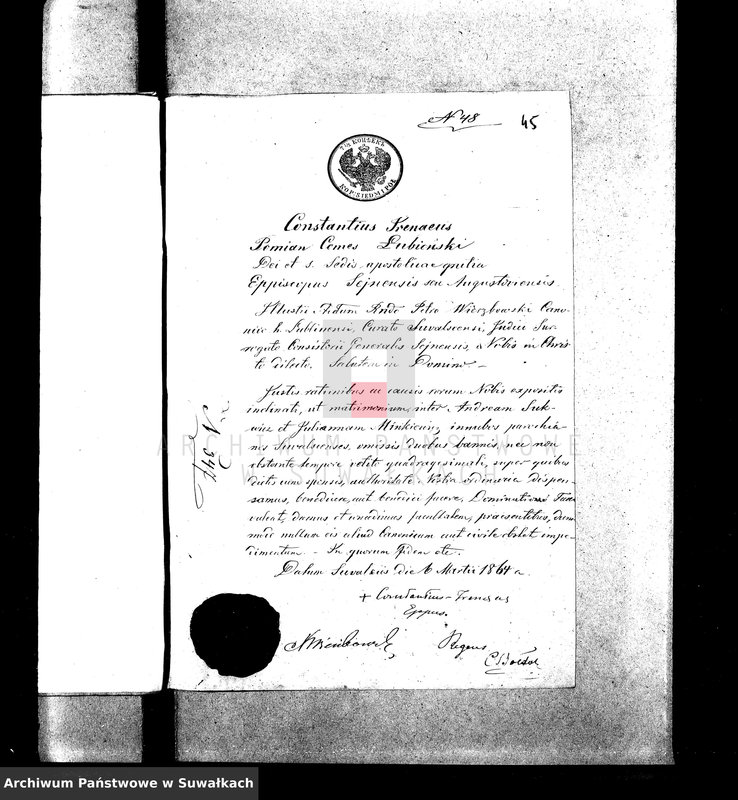 N 48
45
7½ КОПѢЕКЪ
KOP. SIEDM I PÓŁ
Constantius Irenaeus
Pomian Comes Łubieński
Dei et S. Sedis apostolicae gratia
Eppiscopus Sejnensis seu Augustoviensis
Illustri Adtum Rndo Petro Wierzbowski Cano-
nico h. Lublinensi, Curato Suvalscensi, Judici Sur-
rogato Consistorii Generalis Sejnensis, a Nobis in Chris-
to dilecto, Salutem in Domino. -
Justis rationibus ac causis coram Nobis expositis
inclinati, ut matrimonium inter Andream Suk-
wicz et Juliannam Minkiewicz, innubos parochia-
nos Suvalscenses, omissis duobus bannis, nec non
obstante tempore vetito quadragesimali, super quibus
dictis cum sponsis, authoritate Nostra ordinaria dispen-
samus, benedicere, aut benedici facere, Dominatione Tua
valeat, damus et impendimus facultatem, praesentibus, dum-
modo nullum eis aliud Canonicum aut civile obstet impe-
dimentum. - In quorum fidem etc.
Datum Suvalciis die 6 Martii 1864 a.
+ Constantius-Irenaeus
Eppus.
Regens
N 347
ARCHIWUM PAŃSTWOWE
W SUWAŁKACH
Archiwum Państwowe w Suwałkach